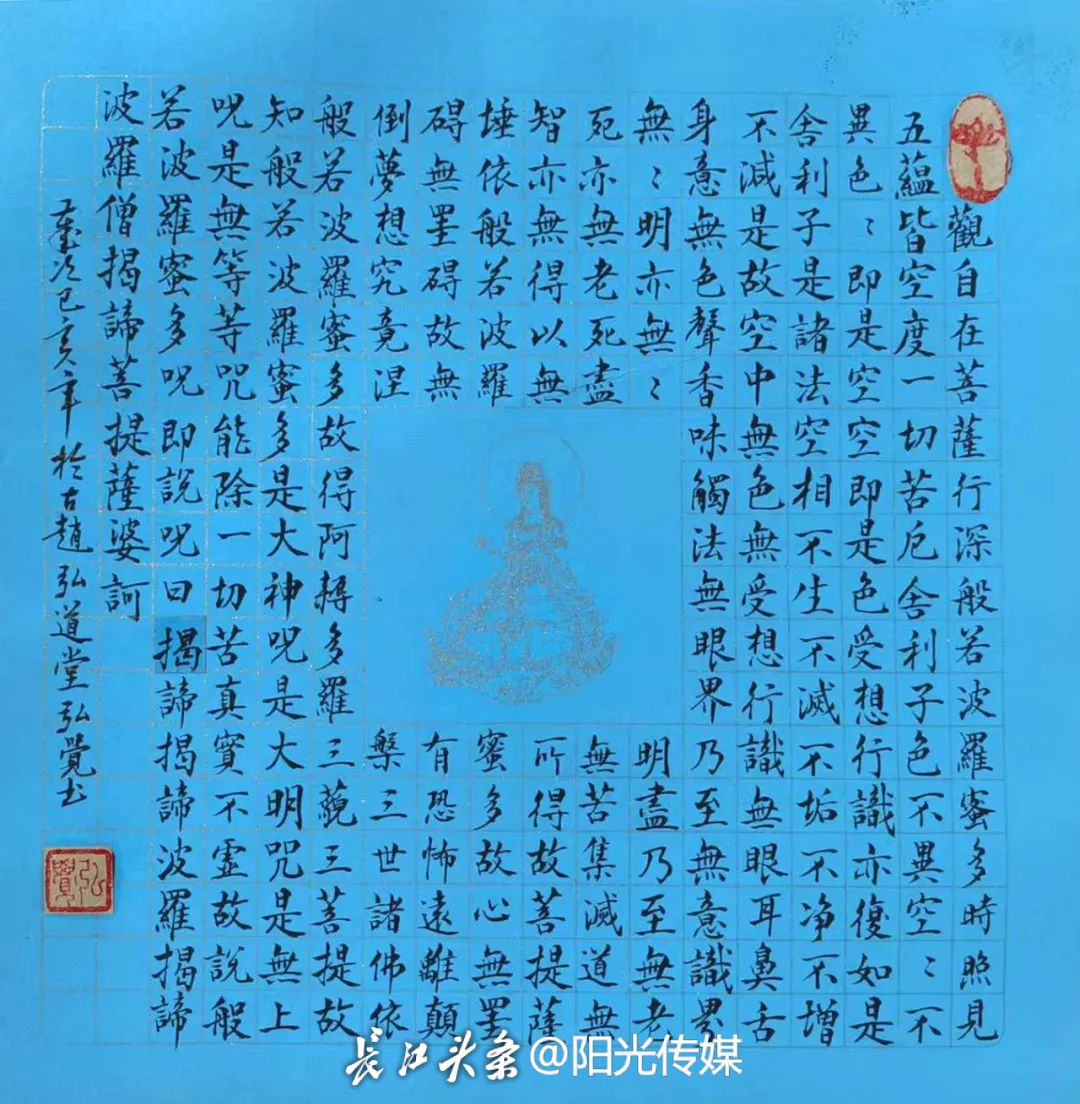 觀自在菩薩行深般若波羅蜜多時照見
五蘊皆空度一切苦厄舍利子色不異空〻不
異色〻即是空空即是色受想行識亦復如是
舍利子是諸法空相不生不滅不垢不净不增
不減是故空中無色無受想行識無眼耳鼻舌
身意無色聲香味觸法無眼界乃至無意識界
無〻明亦無〻明盡乃至無老
死亦無老死盡無苦集滅道無
智亦無得以無所得故菩提薩
埵依般若波羅蜜多故心無罣
碍無罣碍故無有恐怖遠離顛
倒夢想究竟涅槃三世諸佛依
般若波羅蜜多故得阿耨多羅三藐三菩提故
知般若波羅蜜多是大神呪是大明咒是無上
呪是無等等咒能除一切苦真實不虛故說般
若波羅蜜多呪即說呪曰揭諦揭諦波羅揭諦
波羅僧揭諦菩提薩婆訶
歲次己亥年於古趙弘道堂弘覺书
弘覺
长江头条@阳光传媒